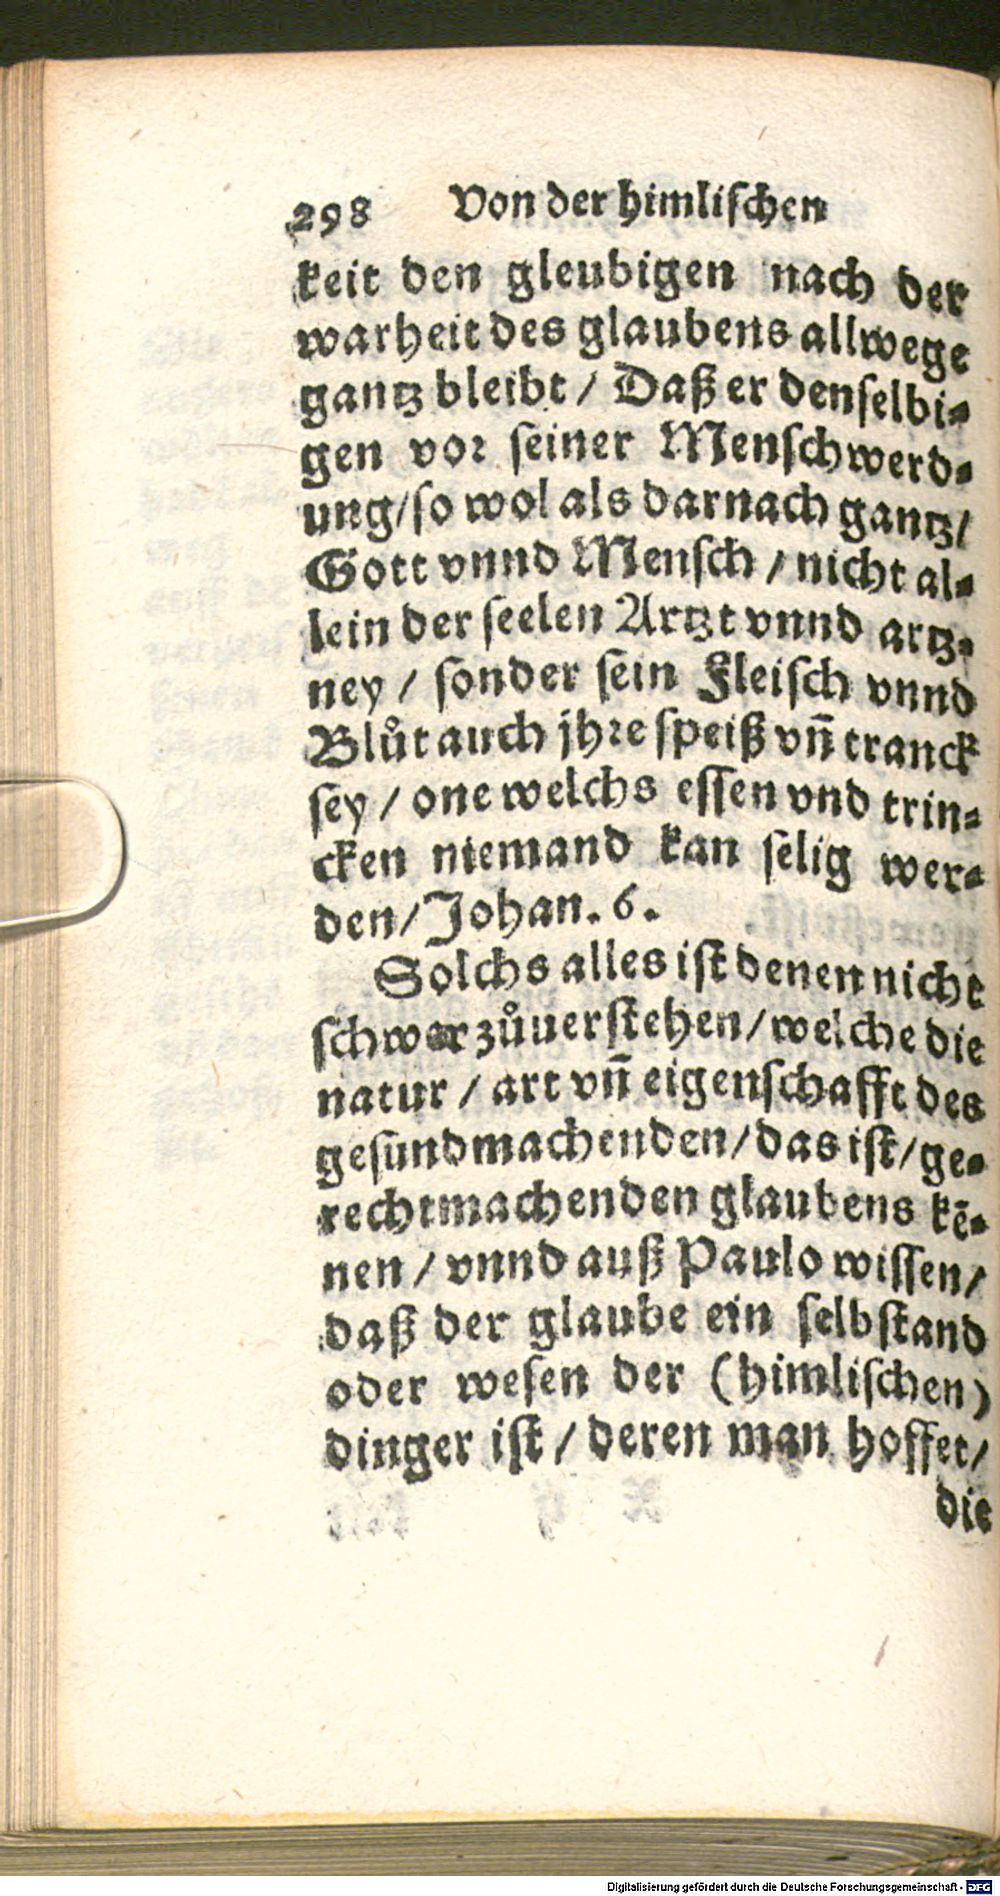 298 Von der himliſchen
keit den gleubigen nach der
warheit des glaubens allwege
gantz bleibt / Daß er denſelbi⸗
gen vor ſeiner Menſchwerd⸗
ung/ſo wol als darnach gantz/
Gott vnnd Menſch / nicht al⸗
lein der ſeelen Artzt vnnd artz⸗
ney / ſonder ſein Fleiſch vnnd
Blůt auch jhre ſpeiß vn̄ tranck
ſey / one welchs eſſen vnd trin⸗
cken niemand kan ſelig wer⸗
den/Johan. 6.
Solchs alles iſt denen nicht
ſchwer zůuerſtehen/welche die
natur / art vn̄ eigenſchafft des
geſundmachenden/das iſt/ge⸗
rechtmachenden glaubens kē⸗
nen / vnnd auß Paulo wiſſen/
daß der glaube ein ſelbſtand
oder weſen der (himliſchen)
dinger iſt / deren man hoffet/
die
Digitalisierung gefördert durch die Deutsche Forschungsgemeinschaft - DFG